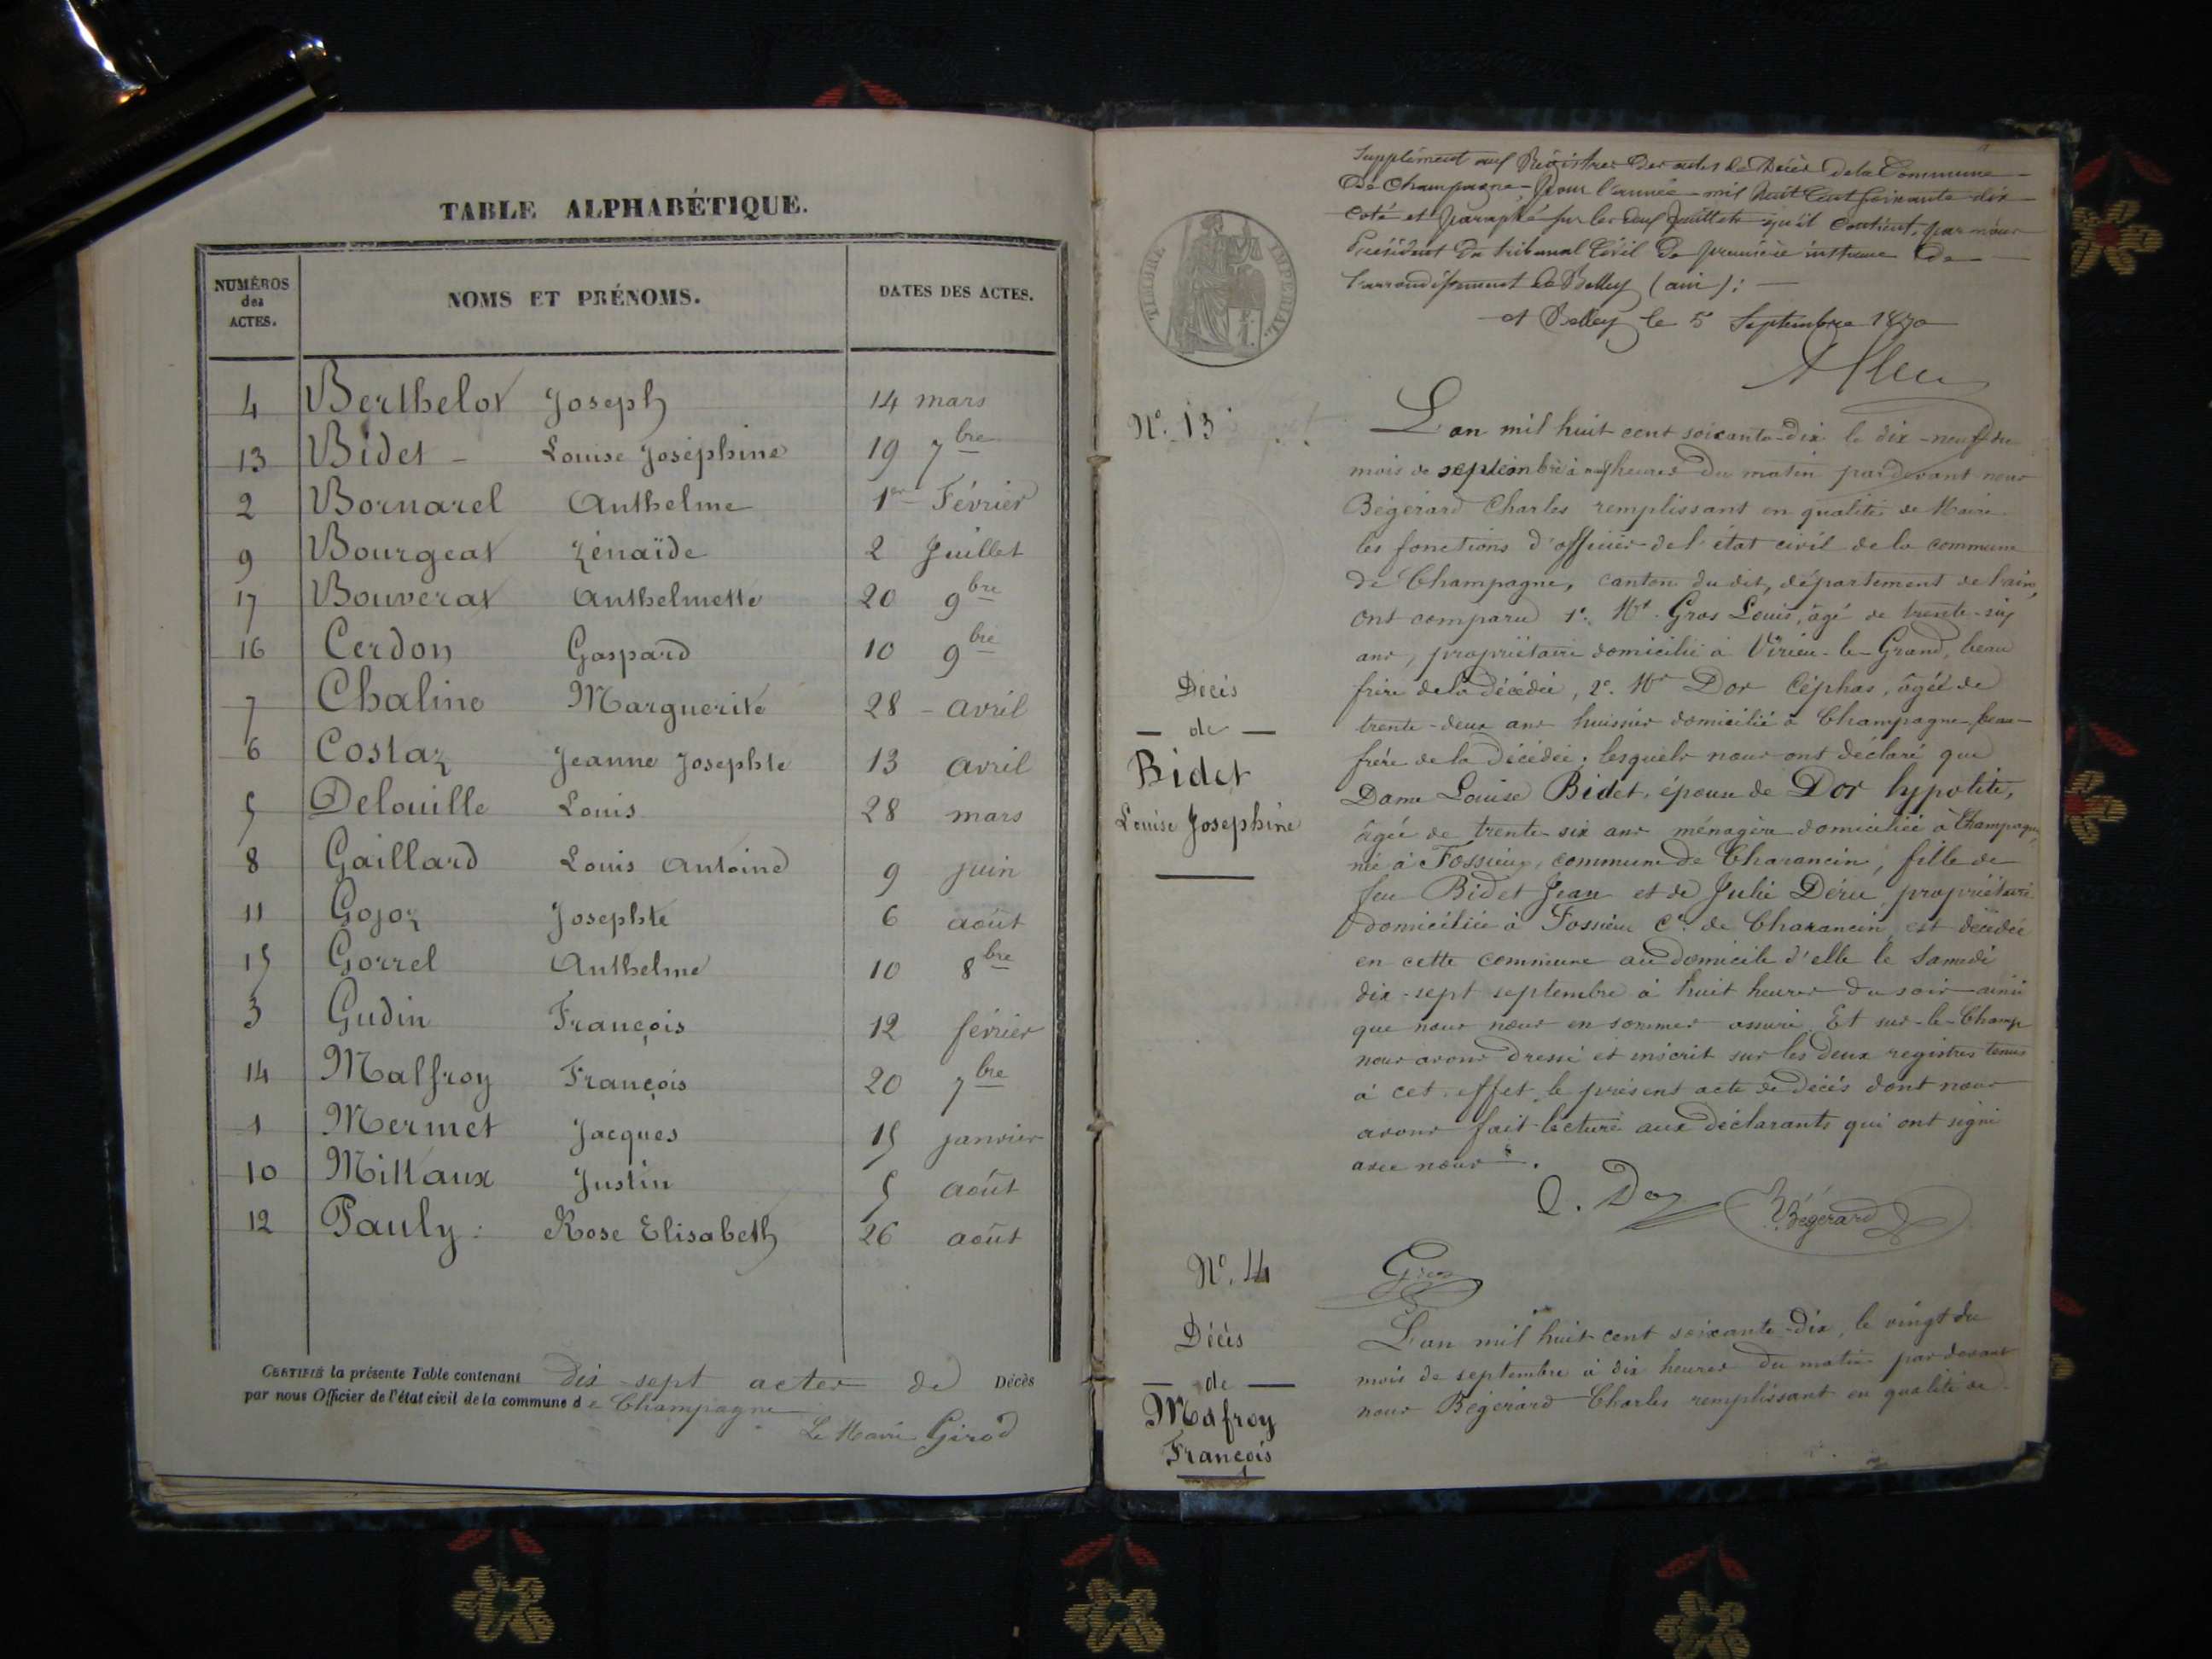 TABLE ALPHABÉTIQUE.
NUMÉROS des ACTES. NOMS ET PRÉNOMS. DATES DES ACTES.
4 Berthelot Joseph 14 mars
13 Bidet - Louise Joséphine 19 7bre
2 Bornarel Anthelme 1er Février
9 Bourgeat Zénaïde 2 Juillet
17 Bouverat Anthelmette 20 9bre
16 Cerdon Gaspard 10 9bre
7 Chaline Marguerite 28 - avril
6 Costaz Jeanne Josephte 13 avril
5 Delouille Louis 28 mars
8 Gaillard Louis Antoine 9 juin
11 Gojoz Josephte 6 août
15 Gorrel Anthelme 10 8bre
3 Gudin François 12 février
14 Malfroy François 20 7bre
1 Mermet Jacques 15 janvier
10 Millaux Justin 5 août
12 Pauly. Rose Elisabeth 26 août
CERTIFIÉ la présente Table contenant dix-sept actes de Décès
par nous Officier de l'état civil de la commune de Champagne
Le Maire Girod
Supplément aux Régistres des actes de Décès de la Commune
De Champagne - pour l'année mil huit Cent soixante dix
coté et paraphé sur les deux feuillets qu'il contient, par nous
Président du tribunal Civil De première instance De
l'arrondissement de Belley (ain):
A Belley le 5 Septembre 1870
TIMBRE IMPÉRIAL.
No. 13
Décès
de
Bidet
Louise Josephine
L'an mil huit cent soixante-dix le dix-neuf du
mois de septembre à neuf heures du matin par devant nous
Bégérard Charles remplissant en qualité de Maire
les fonctions d'officier de l'état civil de la commune
de Champagne, canton du dit, département de l'ain,
ont comparu 1°. Mr. Gros Louis, âgé de trente-six
ans, propriétaire domicilié à Virieu-le-Grand, beau
frère de la décédée, 2°. Mr Dor Céphas, âgée de
trente-deux ans huissier domicilié à Champagne beau-
frère de la décédée; lesquels nous ont déclaré que
Dame Louise Bidet, épouse de Dor hypolite,
âgée de trente-six ans ménagère domiciliée à Champagne,
née à Fossieu, commune de Charancin, fille de
feu Bidet Jean et de Julie Dérue propriétaire
domiciliée à Fossieu Ce. de Charancin, est décédée
en cette commune au domicile d'elle le samedi
dix-sept septembre à huit heures du soir ainsi
que nous nous en sommes assuré. Et sur-le-Champ
nous avons dressé et inscrit sur les deux registres tenus
à cet effet le présent acte de décès dont nous
avons fait lecture aux déclarants qui ont signé
avec nous.
C. Dor Bégérard
Gros
No. 14
Décès
de
Malfroy
François
L'an mil huit cent soixante-dix, le vingt du
mois de septembre à dix heures du matin par devant
nous Bégérard Charles remplissant en qualité de